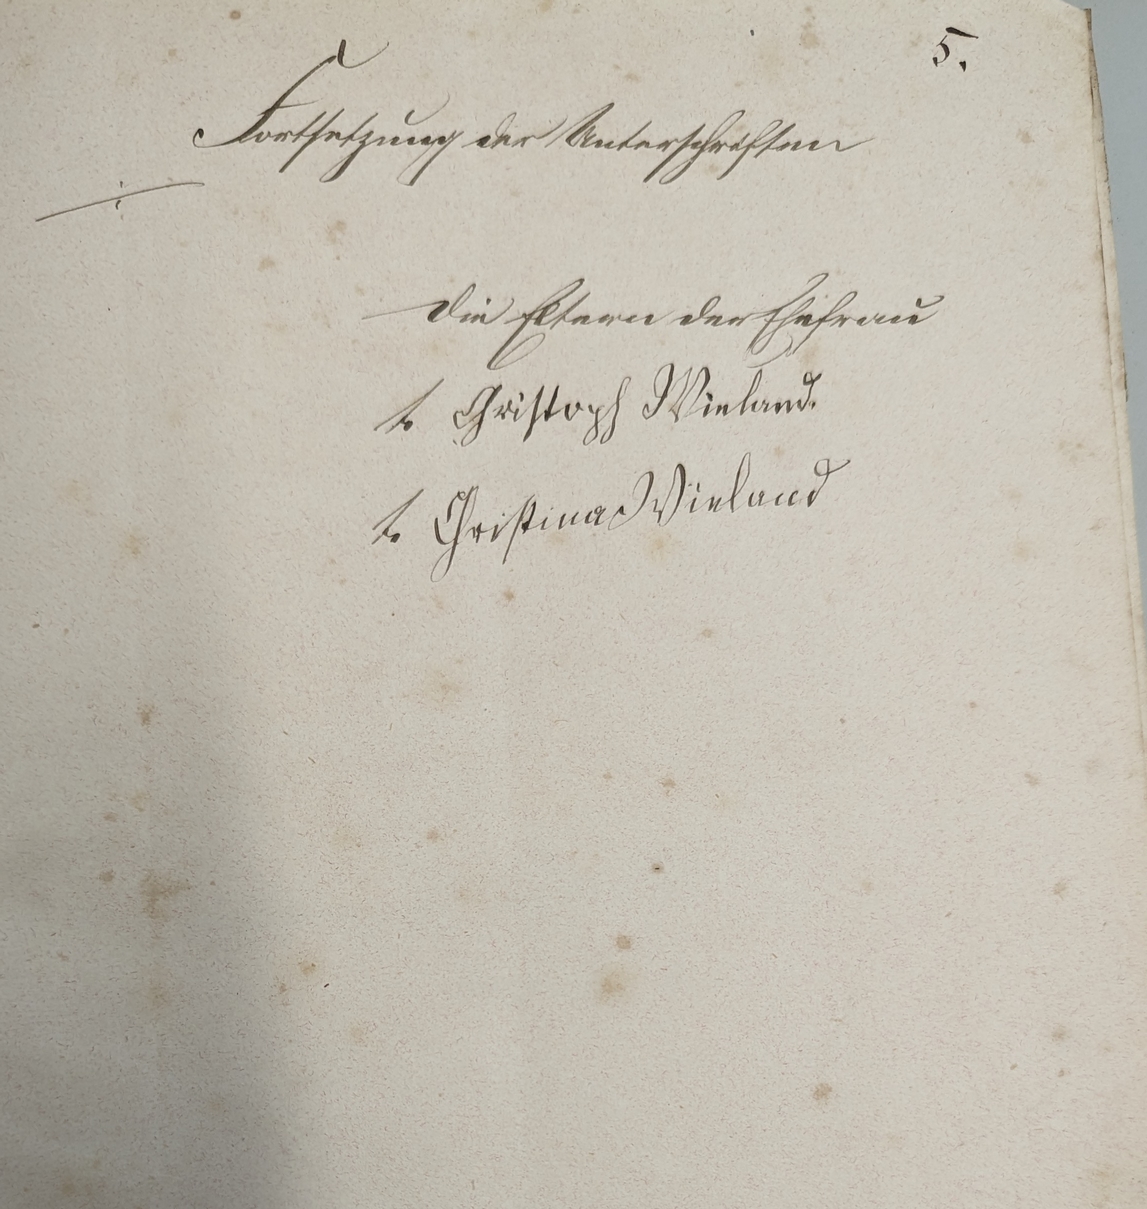 5.
Fortsetzung der Unterschriften
Die Eltern der Ehefrau
t. Christoph Wieland.
t. Christina Wieland